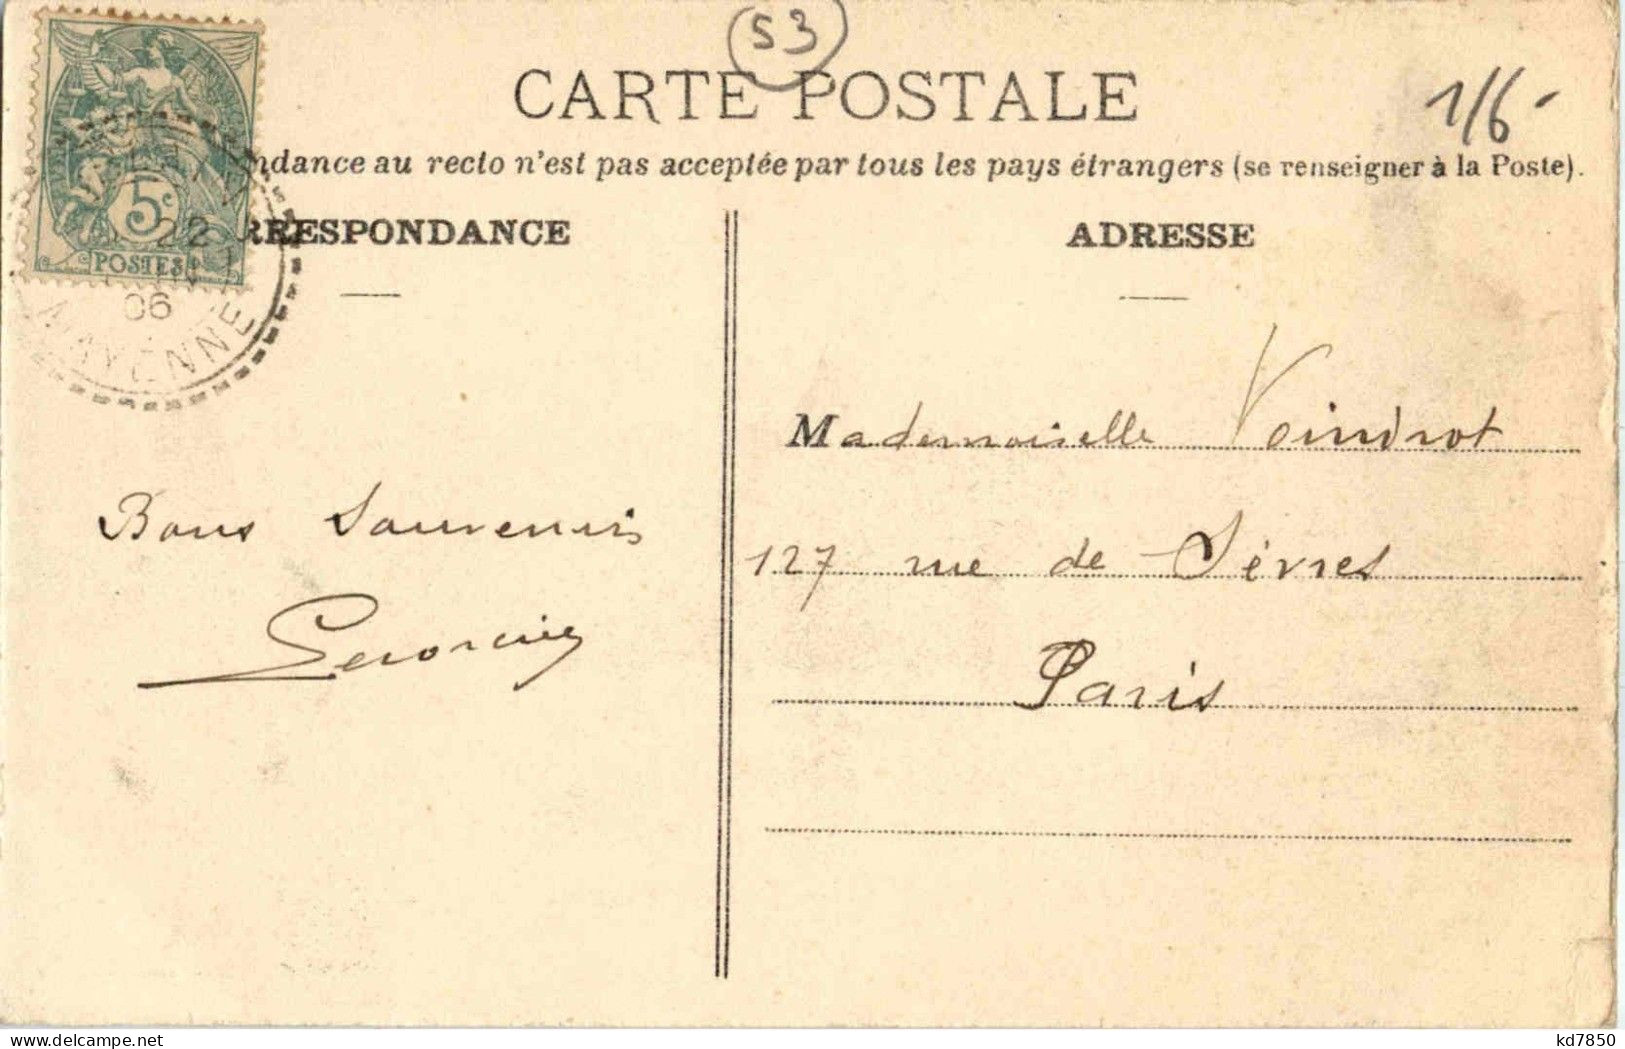 53
CARTE POSTALE
1/6-
ndance au recto n'est pas acceptée par tous les pays étrangers (se renseigner à la Poste).
RRESPONDANCE
ADRESSE
5c
POSTES
22
06
MAYENNE
Mademoiselle Voindrot
127 rue de Sèvres
Paris
Bons Souvenirs
kd7850